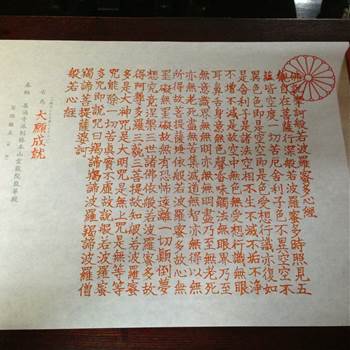 佛說摩訶般若波羅蜜多心經
觀自在菩薩行深般若波羅蜜多時照見五
蘊皆空度一切苦厄舍利子色不異空空不
異色色即是空空即是色受想行識亦復如
是舍利子是諸法空相不生不滅不垢不淨
不增不減是故空中無色無受想行識無眼
耳鼻舌身意無色聲香味觸法無眼界乃至
無意識界無無明亦無無明盡乃至無老死
亦無老死盡無苦集滅道無智亦無得以無
所得故菩提薩埵依般若波羅蜜多故心無
罣礙無罣礙故無有恐怖遠離一切顛倒夢
想究竟涅槃三世諸佛依般若波羅蜜多故
得阿耨多羅三藐三菩提故知般若波羅蜜
多是大神咒是大明咒是無上咒是無等等
咒能除一切苦真實不虛故說般若波羅蜜
多咒即說咒曰羯諦羯諦波羅羯諦波羅僧
羯諦菩提薩婆訶
般若心經
大願成就